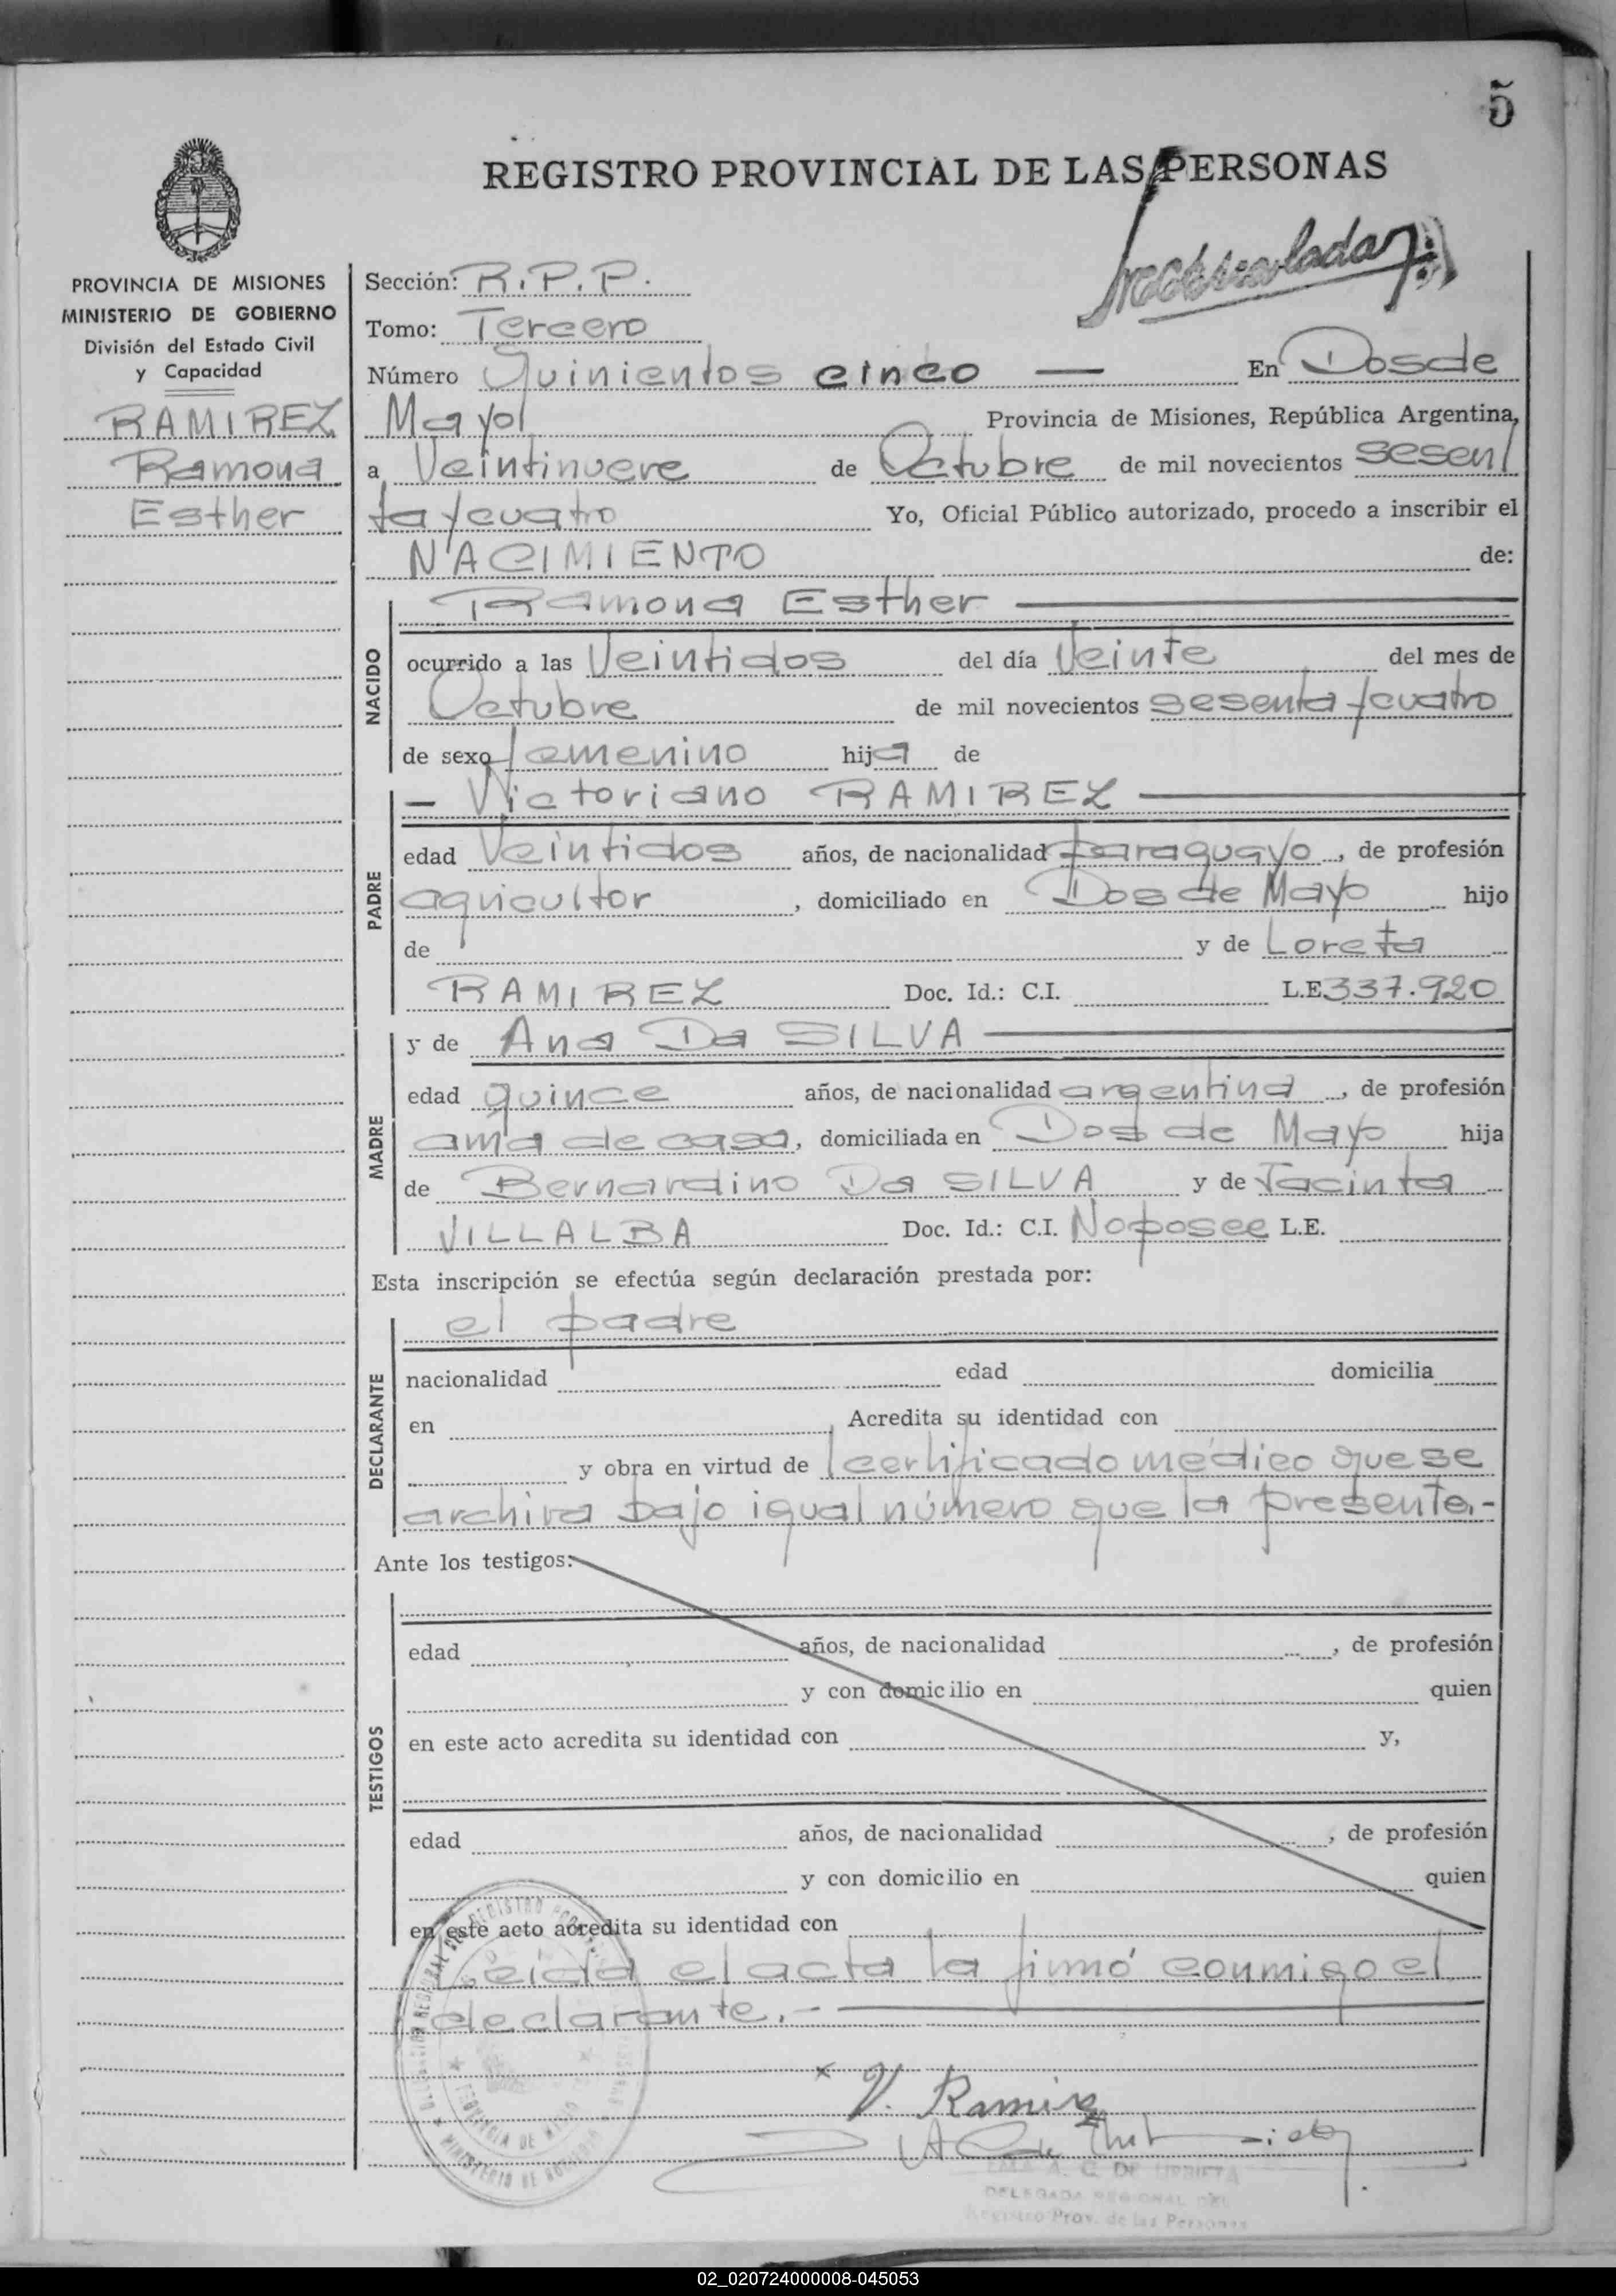 5
REGISTRO PROVINCIAL DE LAS PERSONAS
PROVINCIA DE MISIONES
MINISTERIO DE GOBIERNO
División del Estado Civil
y Capacidad
RAMIREZ
Ramona
Esther
Sección: R.P.P.
Tomo: Tercero
Número Quinientos cinco — En Dos de
Mayo Provincia de Misiones, República Argentina,
a Veintinueve de Octubre de mil novecientos sesen
ta y cuatro Yo, Oficial Público autorizado, procedo a inscribir el
NACIMIENTO de:
NACIDO
Ramona Esther
ocurrido a las Veintidos del día Veinte del mes de
Octubre de mil novecientos sesenta y cuatro
de sexo femenino hija de
PADRE
— Victoriano RAMIREZ
edad Veintidos años, de nacionalidad paraguayo, de profesión
agricultor, domiciliado en Dos de Mayo hijo
de y de Loreta
RAMIREZ Doc. Id.: C.I. L.E 337.920
MADRE
y de Ana Da SILVA
edad quince años, de nacionalidad argentina, de profesión
ama de casa, domiciliada en Dos de Mayo hija
de Bernardino Da SILVA y de Jacinta
VILLALBA Doc. Id.: C.I. No posee L.E.
Esta inscripción se efectúa según declaración prestada por:
DECLARANTE
el padre
nacionalidad edad domicilia
en Acredita su identidad con
y obra en virtud de certificado médico que se
archiva bajo igual número que la presente.-
Ante los testigos:
TESTIGOS
edad años, de nacionalidad , de profesión
y con domicilio en quien
en este acto acredita su identidad con y,
edad años, de nacionalidad , de profesión
y con domicilio en quien
en este acto acredita su identidad con
Leida el acta la firmó conmigo el
declarante.-
x V. Ramirez
A. C. DE URRIETA
DELEGADA REGIONAL DEL
Registro Prov. de las Personas
02_020724000008-045053